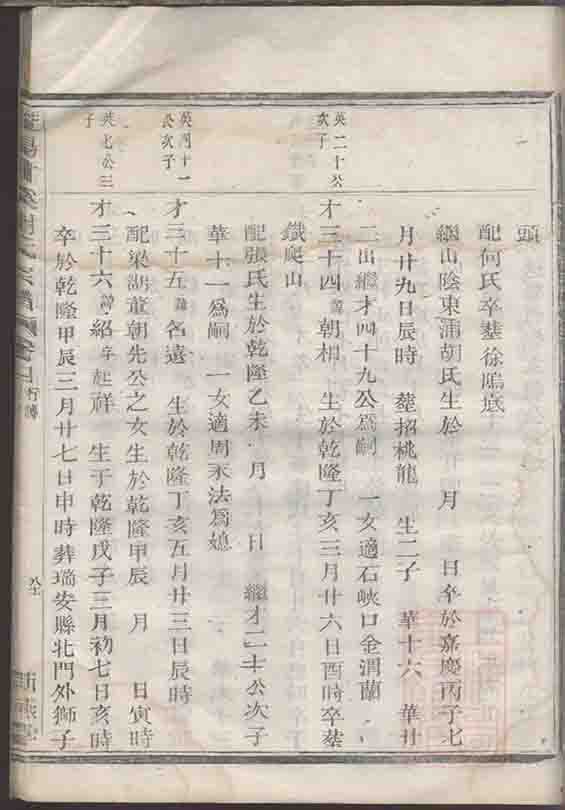 頭
配何氏卒塟徐塢底
繼山陰東浦胡氏生於 月 日卒於嘉慶丙子七
月廿九日辰時 塟招桃龍 生二子 華十六 華廿
二出繼才四十九公爲嗣 一女適石峽口金渭蘭
英二十公次子
才三十四諱朝相 生於乾隆丁亥三月廿六日酉時卒塟
鐵爬山
配張氏生於乾隆乙未 月 日 繼才二十公次子
華十一爲嗣 一女適周永法爲媳
英四十一公次子
才三十五諱名遠 生於乾隆丁亥五月廿三日辰時
配梁湖董朝先公之女生於乾隆甲辰 月 日寅時
英七公三子
才三十六諱紹字起祥 生于乾隆戊子三月初七日亥時
卒於乾隆甲辰三月廿七日申時葬瑞安縣北門外獅子
宗譜 行傳